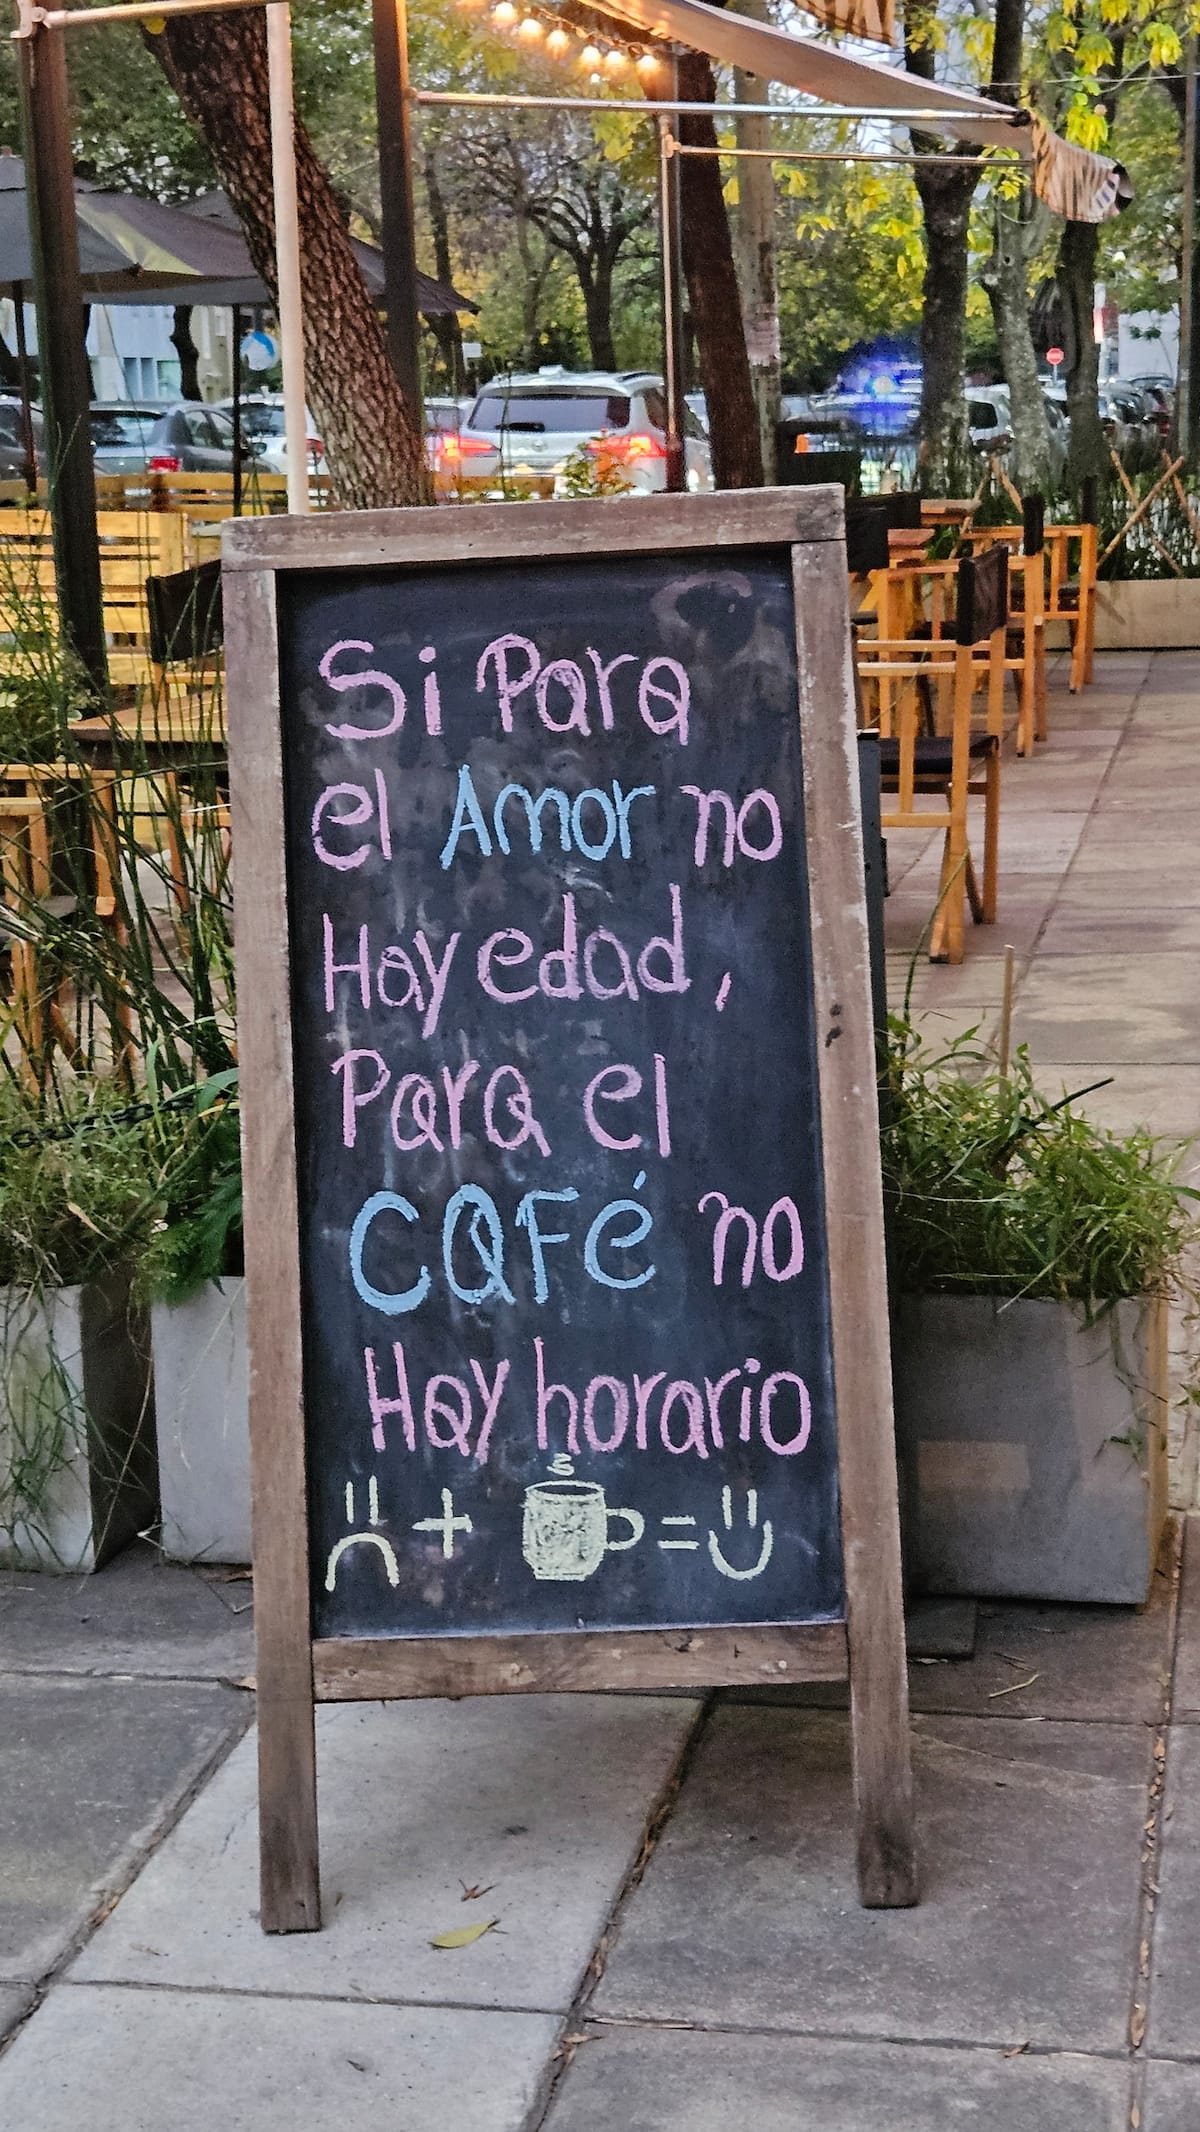 Si Para
el Amor no
Hay edad,
Para el
CAFé no
Hay horario
+ =